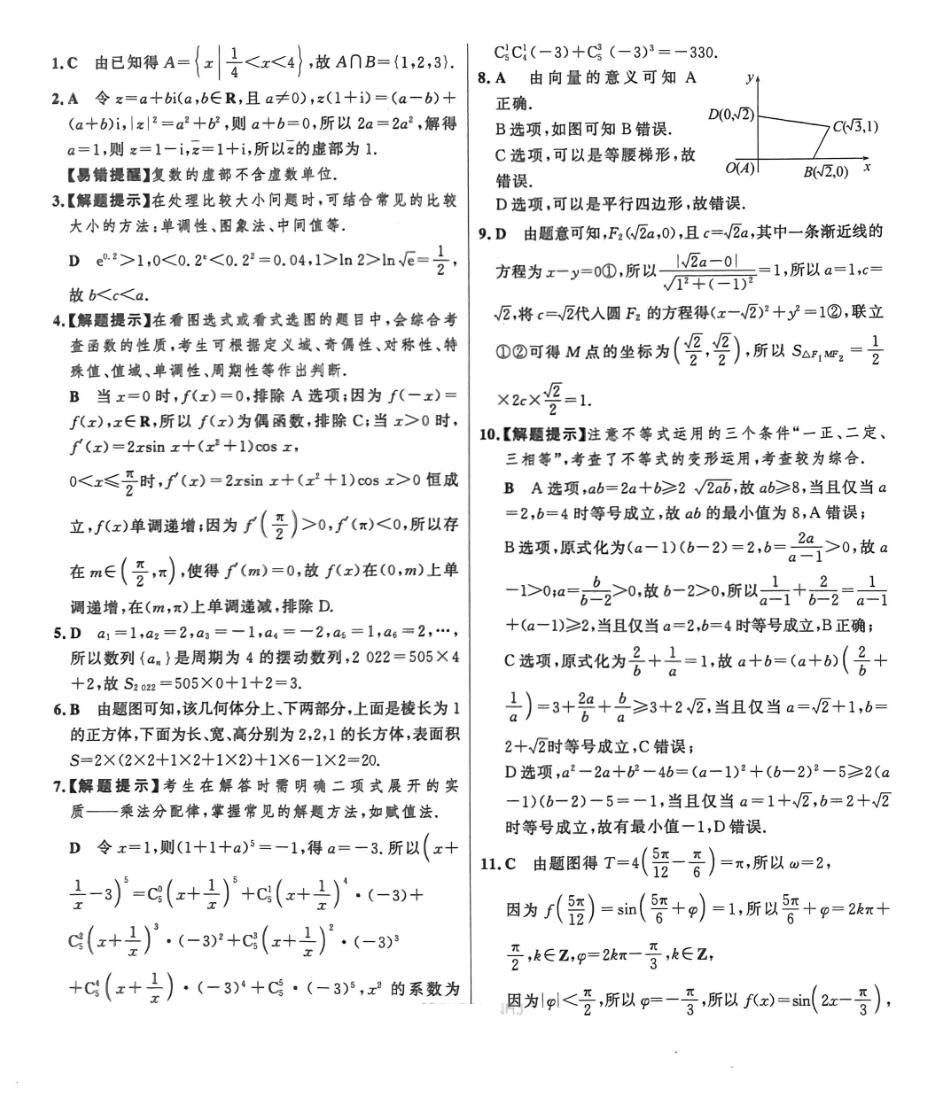 1. C 由已知得 A={x|1/4<x<4},故 A∩B={1,2,3}.
2. A 令 z=a+bi(a,b∈R,且 a≠0),z(1+i)=(a-b)+
(a+b)i,|z|²=a²+b²,则 a+b=0,所以 2a=2a²,解得
a=1,则 z=1-i,z̄=1+i,所以z̄的虚部为 1.
【易错提醒】复数的虚部不含虚数单位.
3.【解题提示】在处理比较大小问题时,可结合常见的比较
大小的方法:单调性、图象法、中间值等.
D e^0.2>1,0<0.2^e<0.2²=0.04,1>ln 2>ln√e=1/2,
故 b<c<a.
4.【解题提示】在看图选式或看式选图的题目中,会综合考
查函数的性质,考生可根据定义域、奇偶性、对称性、特
殊值、值域、单调性、周期性等作出判断.
B 当 x=0 时,f(x)=0,排除 A 选项;因为 f(-x)=
f(x),x∈R,所以 f(x)为偶函数,排除 C;当 x>0 时,
f′(x)=2xsin x+(x²+1)cos x,
0<x≤π/2时,f′(x)=2xsin x+(x²+1)cos x>0 恒成
立,f(x)单调递增;因为 f′(π/2)>0,f′(π)<0,所以存
在 m∈(π/2,π),使得 f′(m)=0,故 f(x)在(0,m)上单
调递增,在(m,π)上单调递减,排除 D.
5. D a₁=1,a₂=2,a₃=-1,a₄=-2,a₅=1,a₆=2,…,
所以数列{aₙ}是周期为 4 的摆动数列,2 022=505×4
+2,故 S₂ ₀₂₂=505×0+1+2=3.
6. B 由题图可知,该几何体分上、下两部分,上面是棱长为 1
的正方体,下面为长、宽、高分别为 2,2,1 的长方体,表面积
S=2×(2×2+1×2+1×2)+1×6-1×2=20.
7.【解题提示】考生在解答时需明确二项式展开的实
质——乘法分配律,掌握常见的解题方法,如赋值法.
D 令 x=1,则(1+1+a)⁵=-1,得 a=-3. 所以(x+
1/x-3)⁵=C₅⁰(x+1/x)⁵+C₅¹(x+1/x)⁴·(-3)+
C₅²(x+1/x)³·(-3)²+C₅³(x+1/x)²·(-3)³
+C₅⁴(x+1/x)·(-3)⁴+C₅⁵·(-3)⁵,x²的系数为
C₅¹C₄¹(-3)+C₅³(-3)³=-330.
8. A 由向量的意义可知 A
正确.
B 选项,如图可知 B 错误.
C 选项,可以是等腰梯形,故
错误.
D 选项,可以是平行四边形,故错误.
y
D(0,√2)
C(√3,1)
O(A)
B(√2,0)
x
9. D 由题意可知,F₂(√2a,0),且 c=√2a,其中一条渐近线的
方程为 x-y=0①,所以|√2a-0|/√(1²+(-1)²)=1,所以 a=1,c=
√2,将 c=√2代入圆 F₂ 的方程得(x-√2)²+y²=1②,联立
①②可得 M 点的坐标为(√2/2,√2/2),所以 S△F₁MF₂=1/2
×2c×√2/2=1.
10.【解题提示】注意不等式运用的三个条件“一正、二定、
三相等”,考查了不等式的变形运用,考查较为综合.
B A 选项,ab=2a+b≥2√2ab,故 ab≥8,当且仅当 a
=2,b=4 时等号成立,故 ab 的最小值为 8,A 错误;
B 选项,原式化为(a-1)(b-2)=2,b=2a/(a-1)>0,故 a
-1>0;a=b/(b-2)>0,故 b-2>0,所以1/(a-1)+2/(b-2)=1/(a-1)
+(a-1)≥2,当且仅当 a=2,b=4 时等号成立,B 正确;
C 选项,原式化为2/b+1/a=1,故 a+b=(a+b)(2/b+
1/a)=3+2a/b+b/a≥3+2√2,当且仅当 a=√2+1,b=
2+√2时等号成立,C 错误;
D 选项,a²-2a+b²-4b=(a-1)²+(b-2)²-5≥2(a
-1)(b-2)-5=-1,当且仅当 a=1+√2,b=2+√2
时等号成立,故有最小值-1,D 错误.
11. C 由题图得 T=4(5π/12-π/6)=π,所以 ω=2,
因为 f(5π/12)=sin(5π/6+φ)=1,所以5π/6+φ=2kπ+
π/2,k∈Z,φ=2kπ-π/3,k∈Z,
因为|φ|<π/2,所以 φ=-π/3,所以 f(x)=sin(2x-π/3),